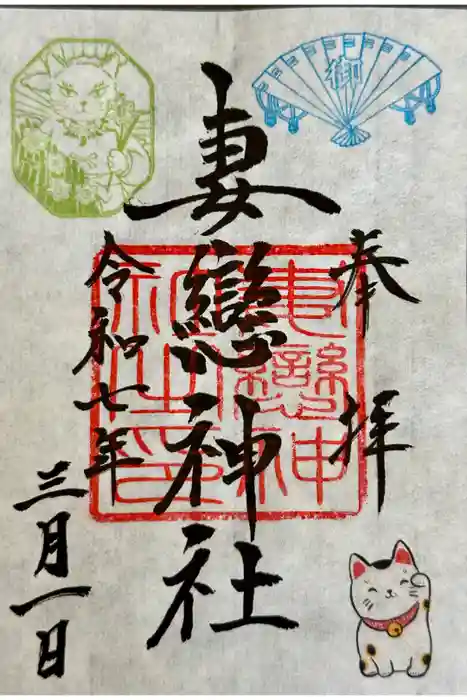 奉拝
御
妻戀神社
妻戀神社之印
令和七年
三月一日